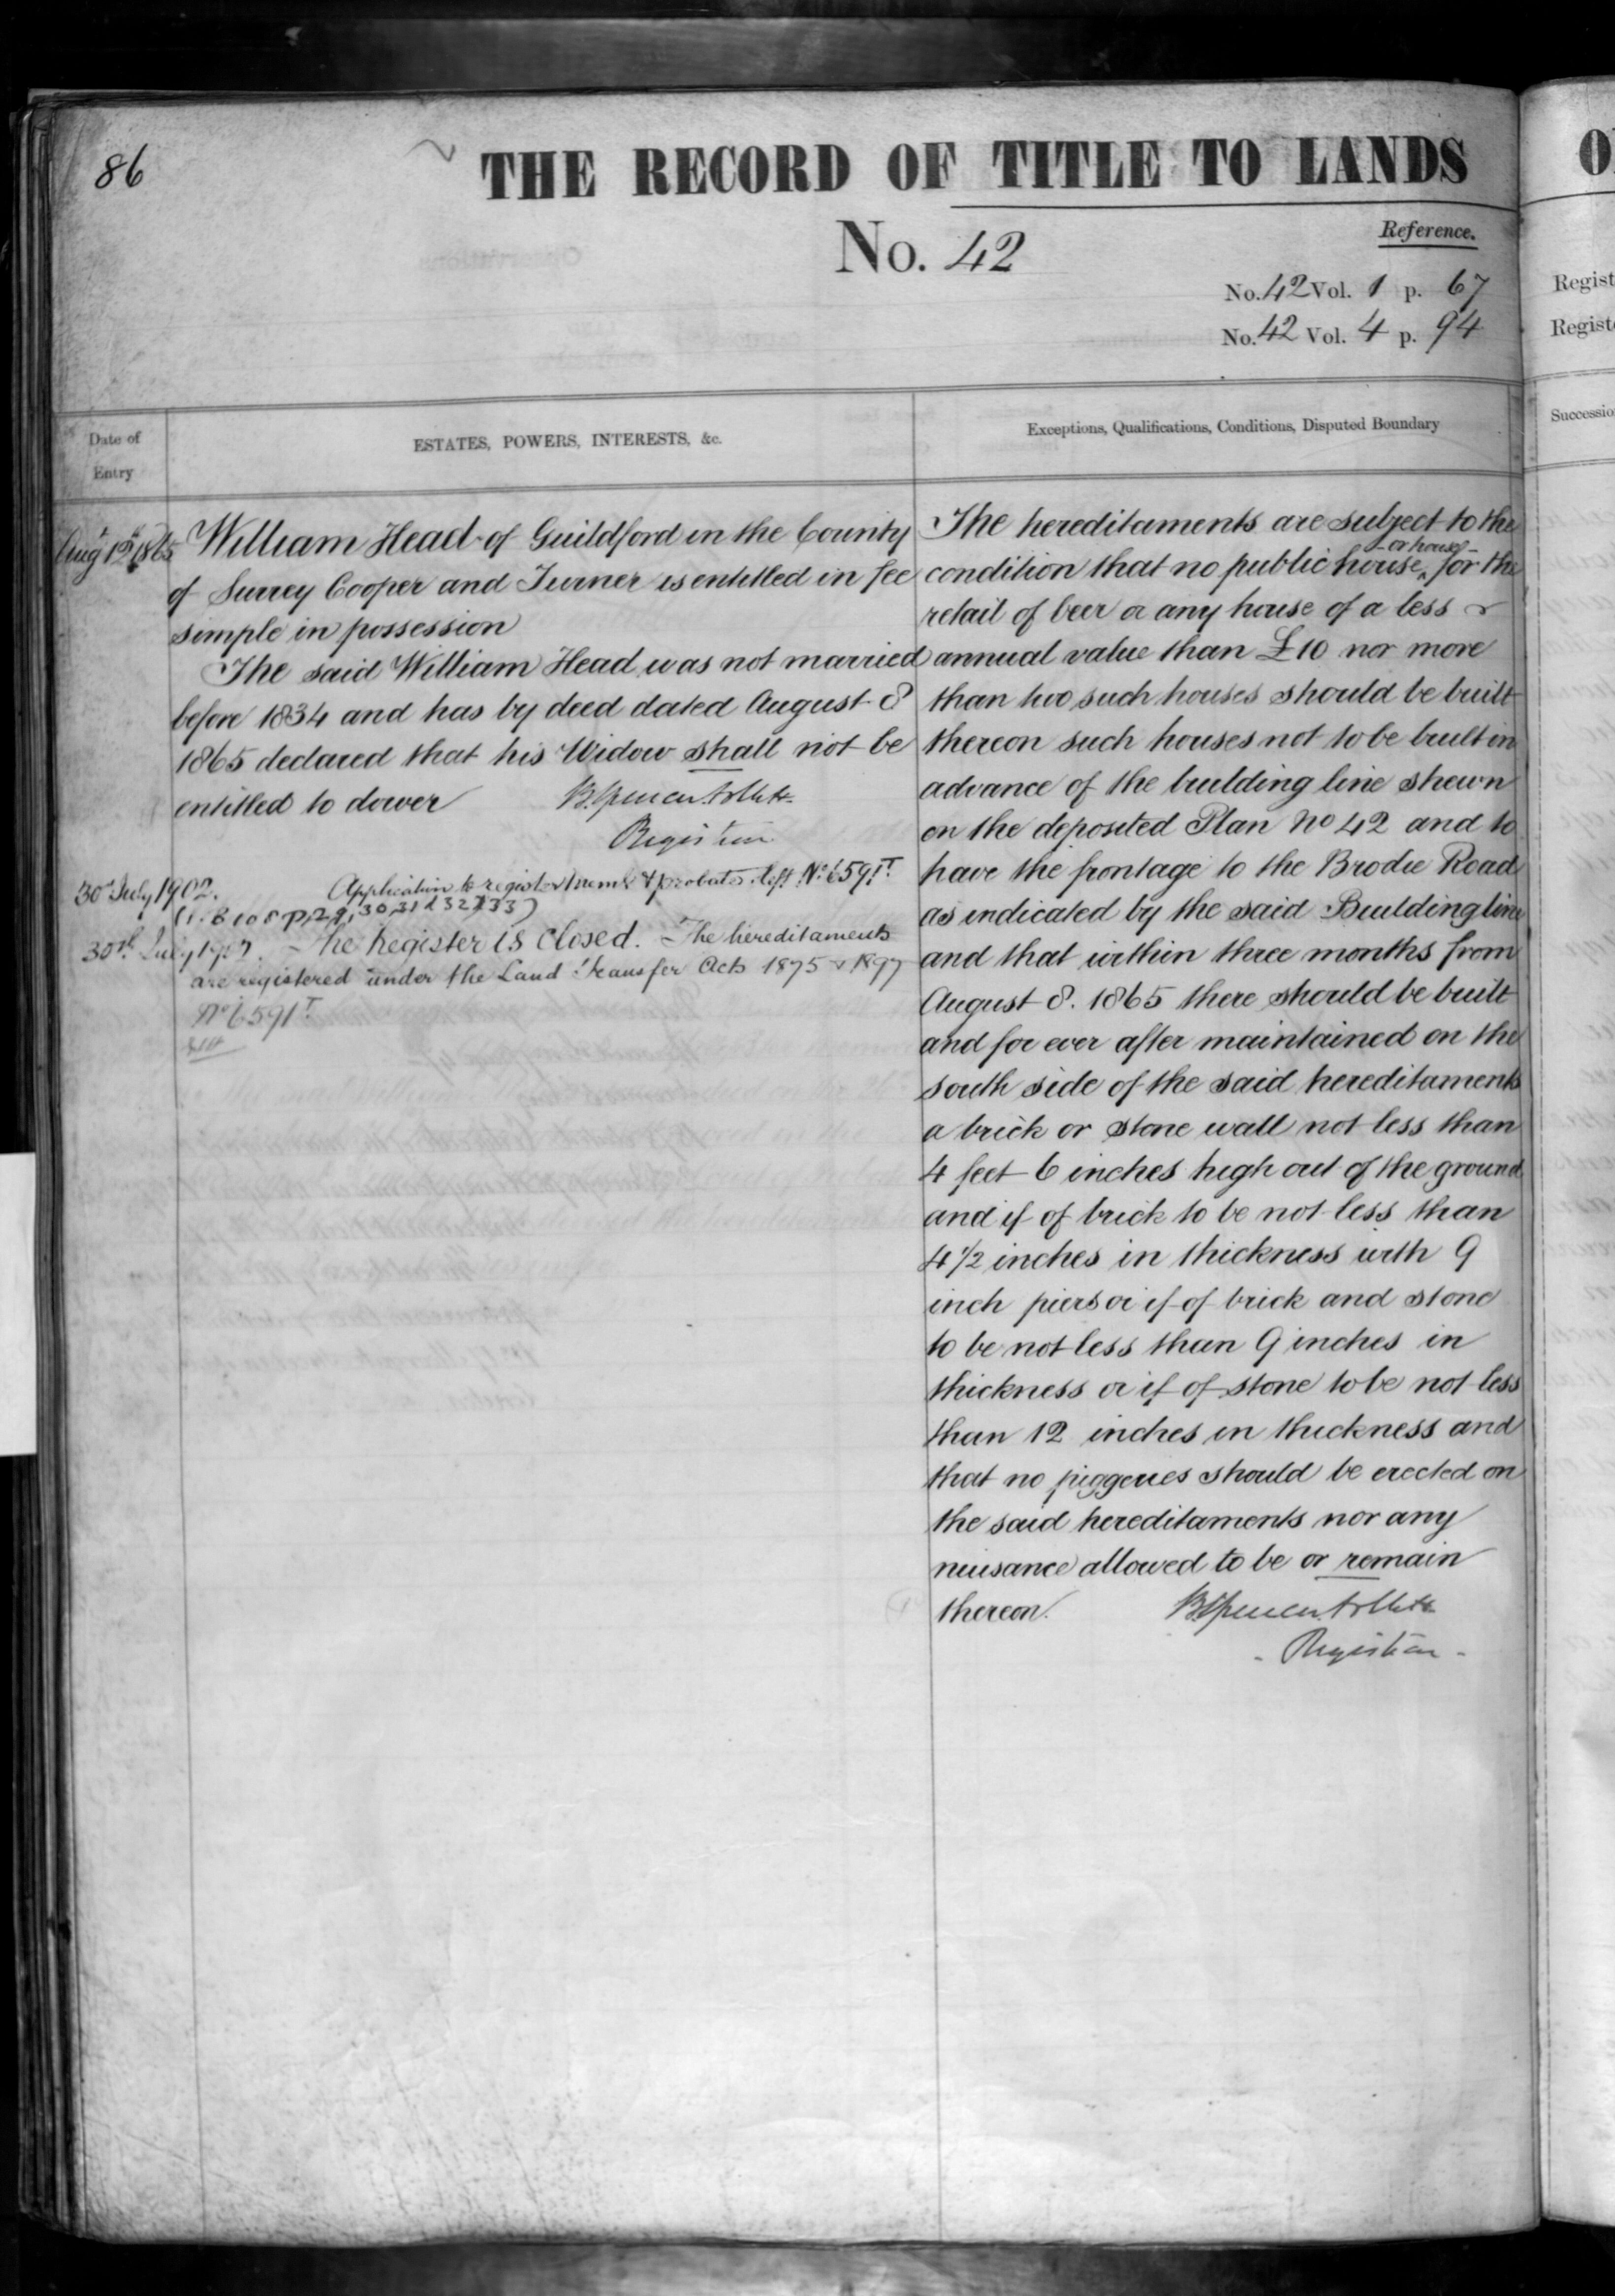 86
THE RECORD OF TITLE TO LANDS
No. 42
Reference.
No. 42 Vol. 1 p. 67
No. 42 Vol. 4 p. 94
Date of Entry
ESTATES, POWERS, INTERESTS, &c.
Exceptions, Qualifications, Conditions, Disputed Boundary
Augt 12th 1865
William Head of Guildford in the County
of Surrey Cooper and Turner is entitled in fee
simple in possession
The said William Head was not married
before 1834 and has by deed dated August 8
1865 declared that his Widow shall not be
entitled to dower
B. Spencer Follett
Registrar
30th July 1902.
Application to register & probates left No. 6591T
30th July
The Register is closed. The hereditaments
are registered under the Land Transfer Acts 1875 & 1897
No. 6591T
The hereditaments are subject to the
condition that no public house - or house - for the
retail of beer or any house of a less
annual value than £10 nor more
than two such houses should be built
thereon such houses not to be built in
advance of the building line shewn
on the deposited Plan No 42 and to
have the frontage to the Brodie Road
as indicated by the said Building line
and that within three months from
August 8. 1865 there should be built
and for ever after maintained on the
south side of the said hereditaments
a brick or stone wall not less than
4 feet 6 inches high out of the ground
and if of brick to be not less than
4 1/2 inches in thickness with 9
inch piers or if of brick and stone
to be not less than 9 inches in
thickness or if of stone to be not less
than 12 inches in thickness and
that no piggeries should be erected on
the said hereditaments nor any
nuisance allowed to be or remain
thereon.
B. Spencer Follett
- Registrar -
O
Regist
Regist
Successio